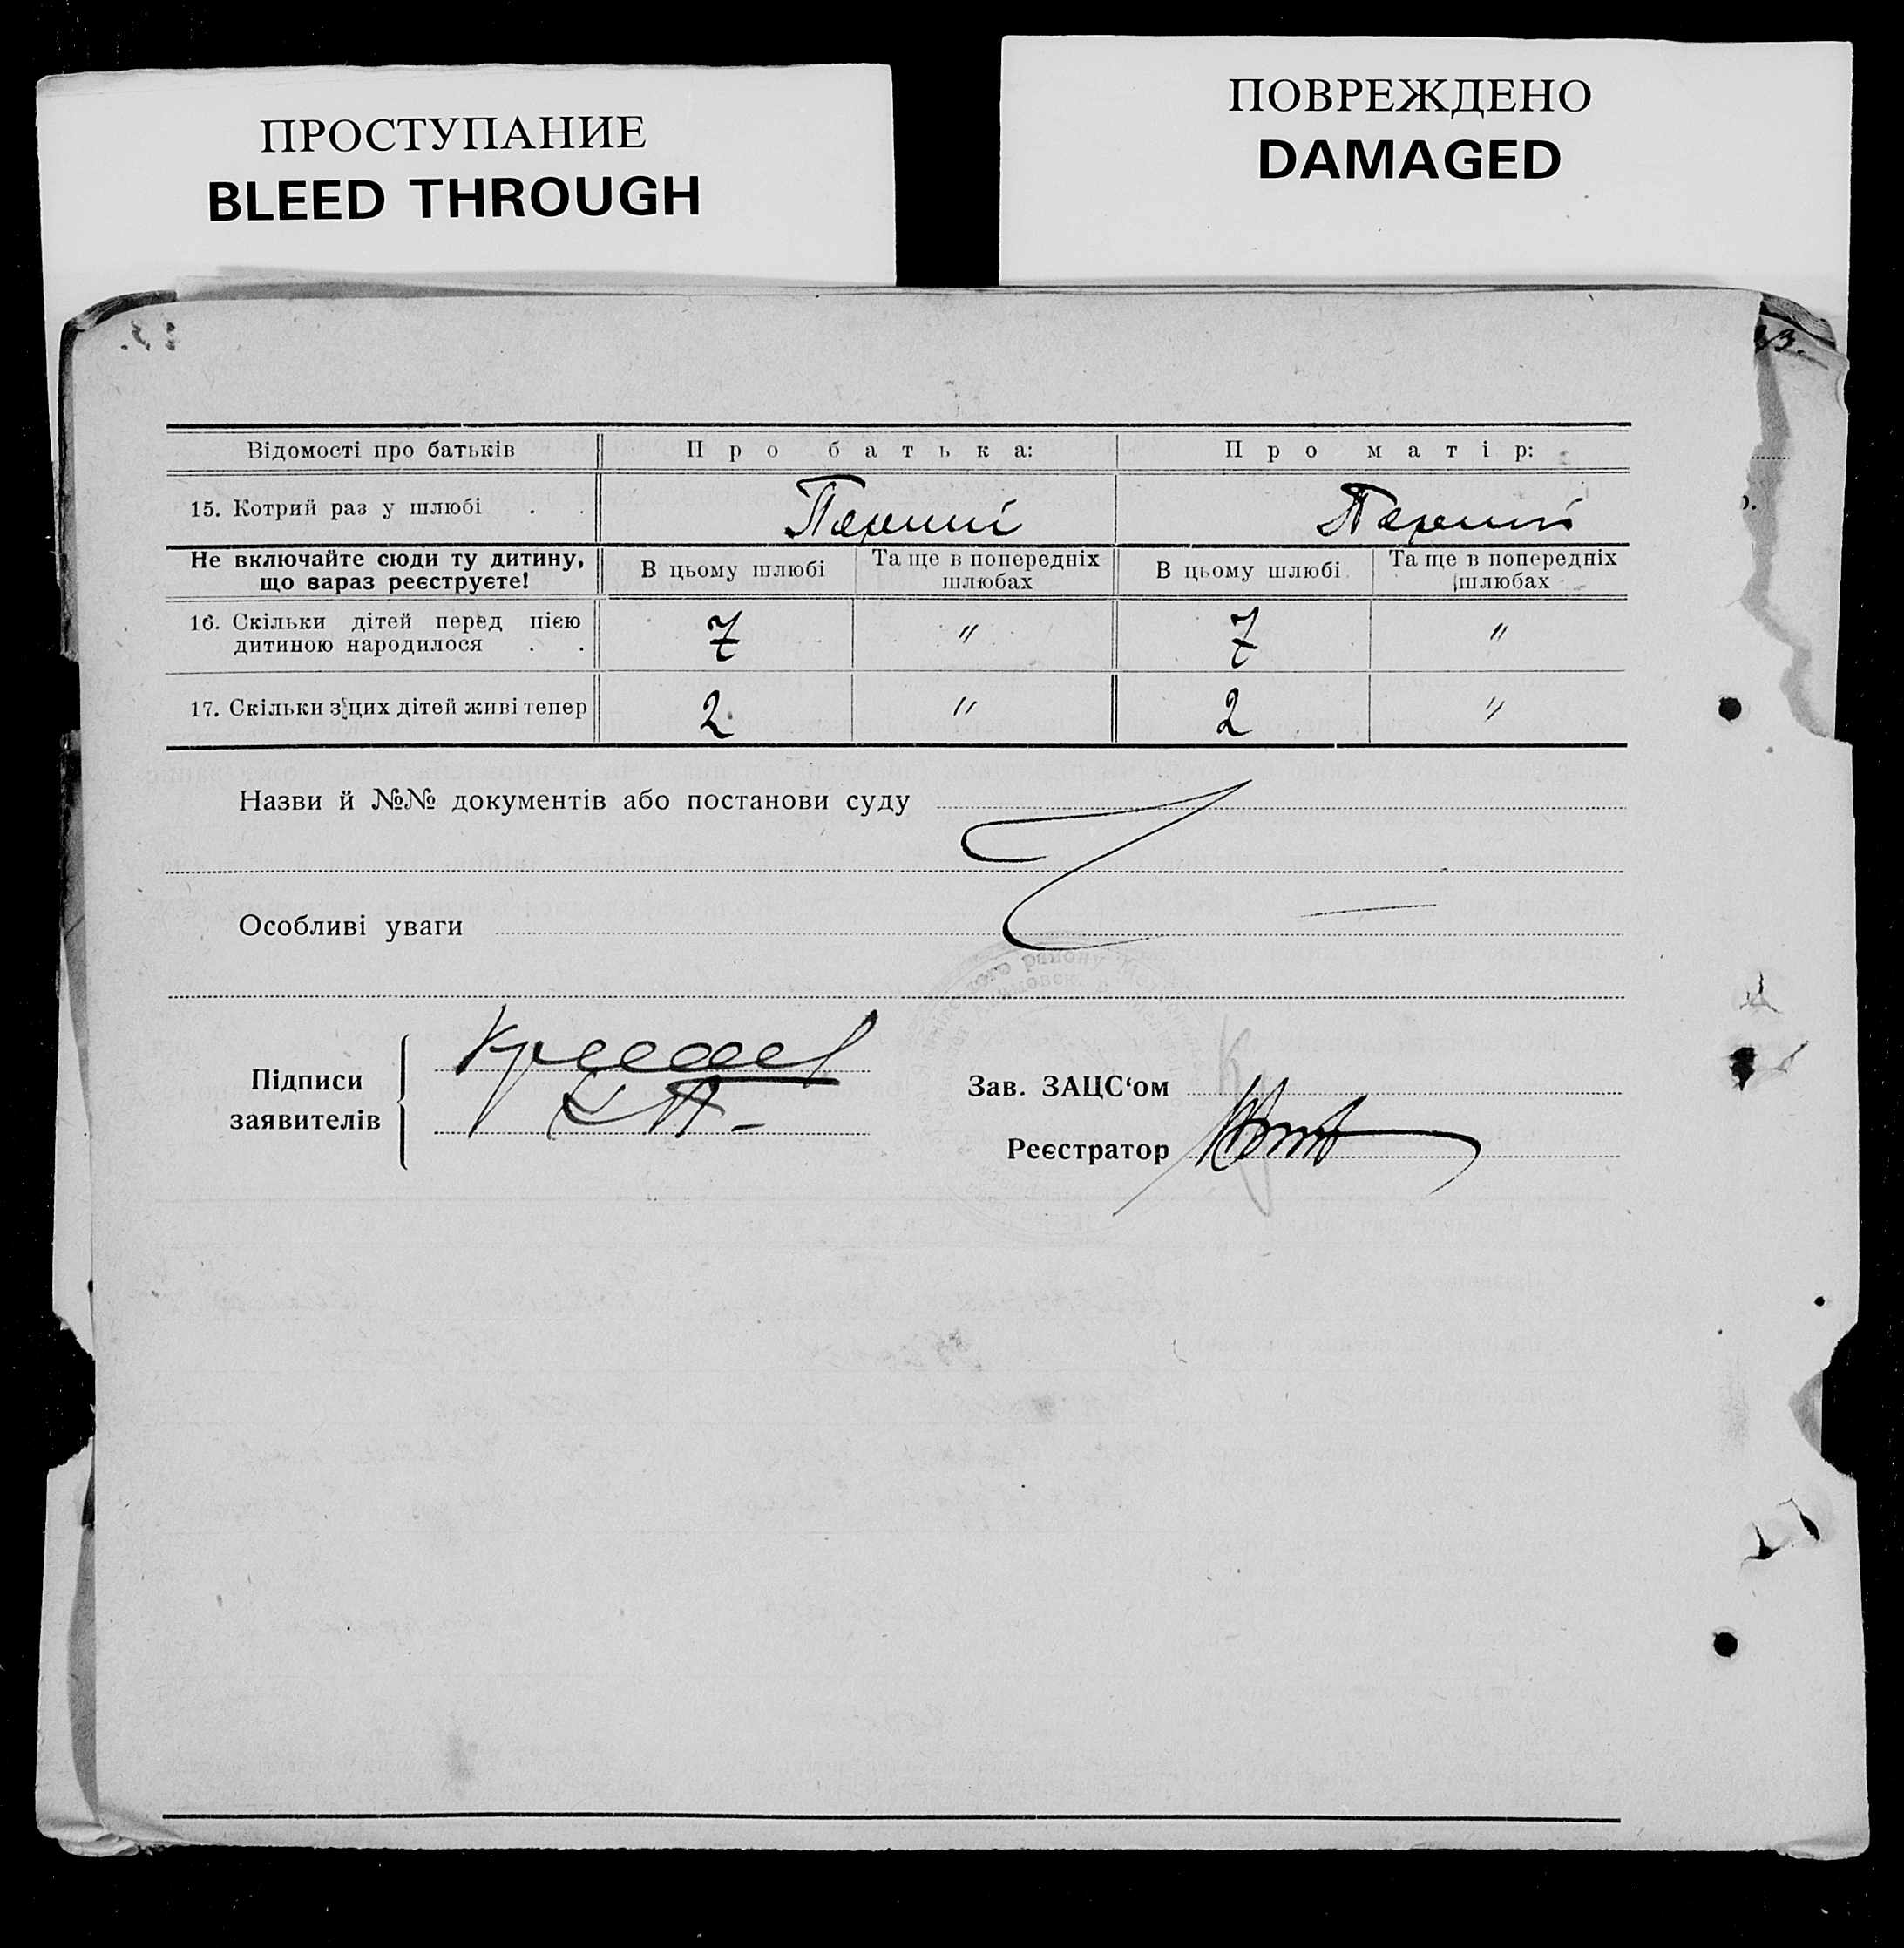 ПРОСТУПАНИЕ
BLEED THROUGH
ПОВРЕЖДЕНО
DAMAGED
Відомості про батьків Про батька: Про матір:
15. Котрий раз у шлюбі . . Перший Перший
Не включайте сюди ту дитину, що вараз реєструєте! В цьому шлюбі Та ще в попередніх шлюбах В цьому шлюбі Та ще в попередніх шлюбах
16. Скільки дітей перед цією дитиною народилося . . 7 〃 7 〃
17. Скільки з цих дітей живі тепер 2 〃 2 〃
Назви й №№ документів або постанови суду
Особливі уваги
Підписи заявителів
Зав. ЗАЦС‘ом
Реєстратор